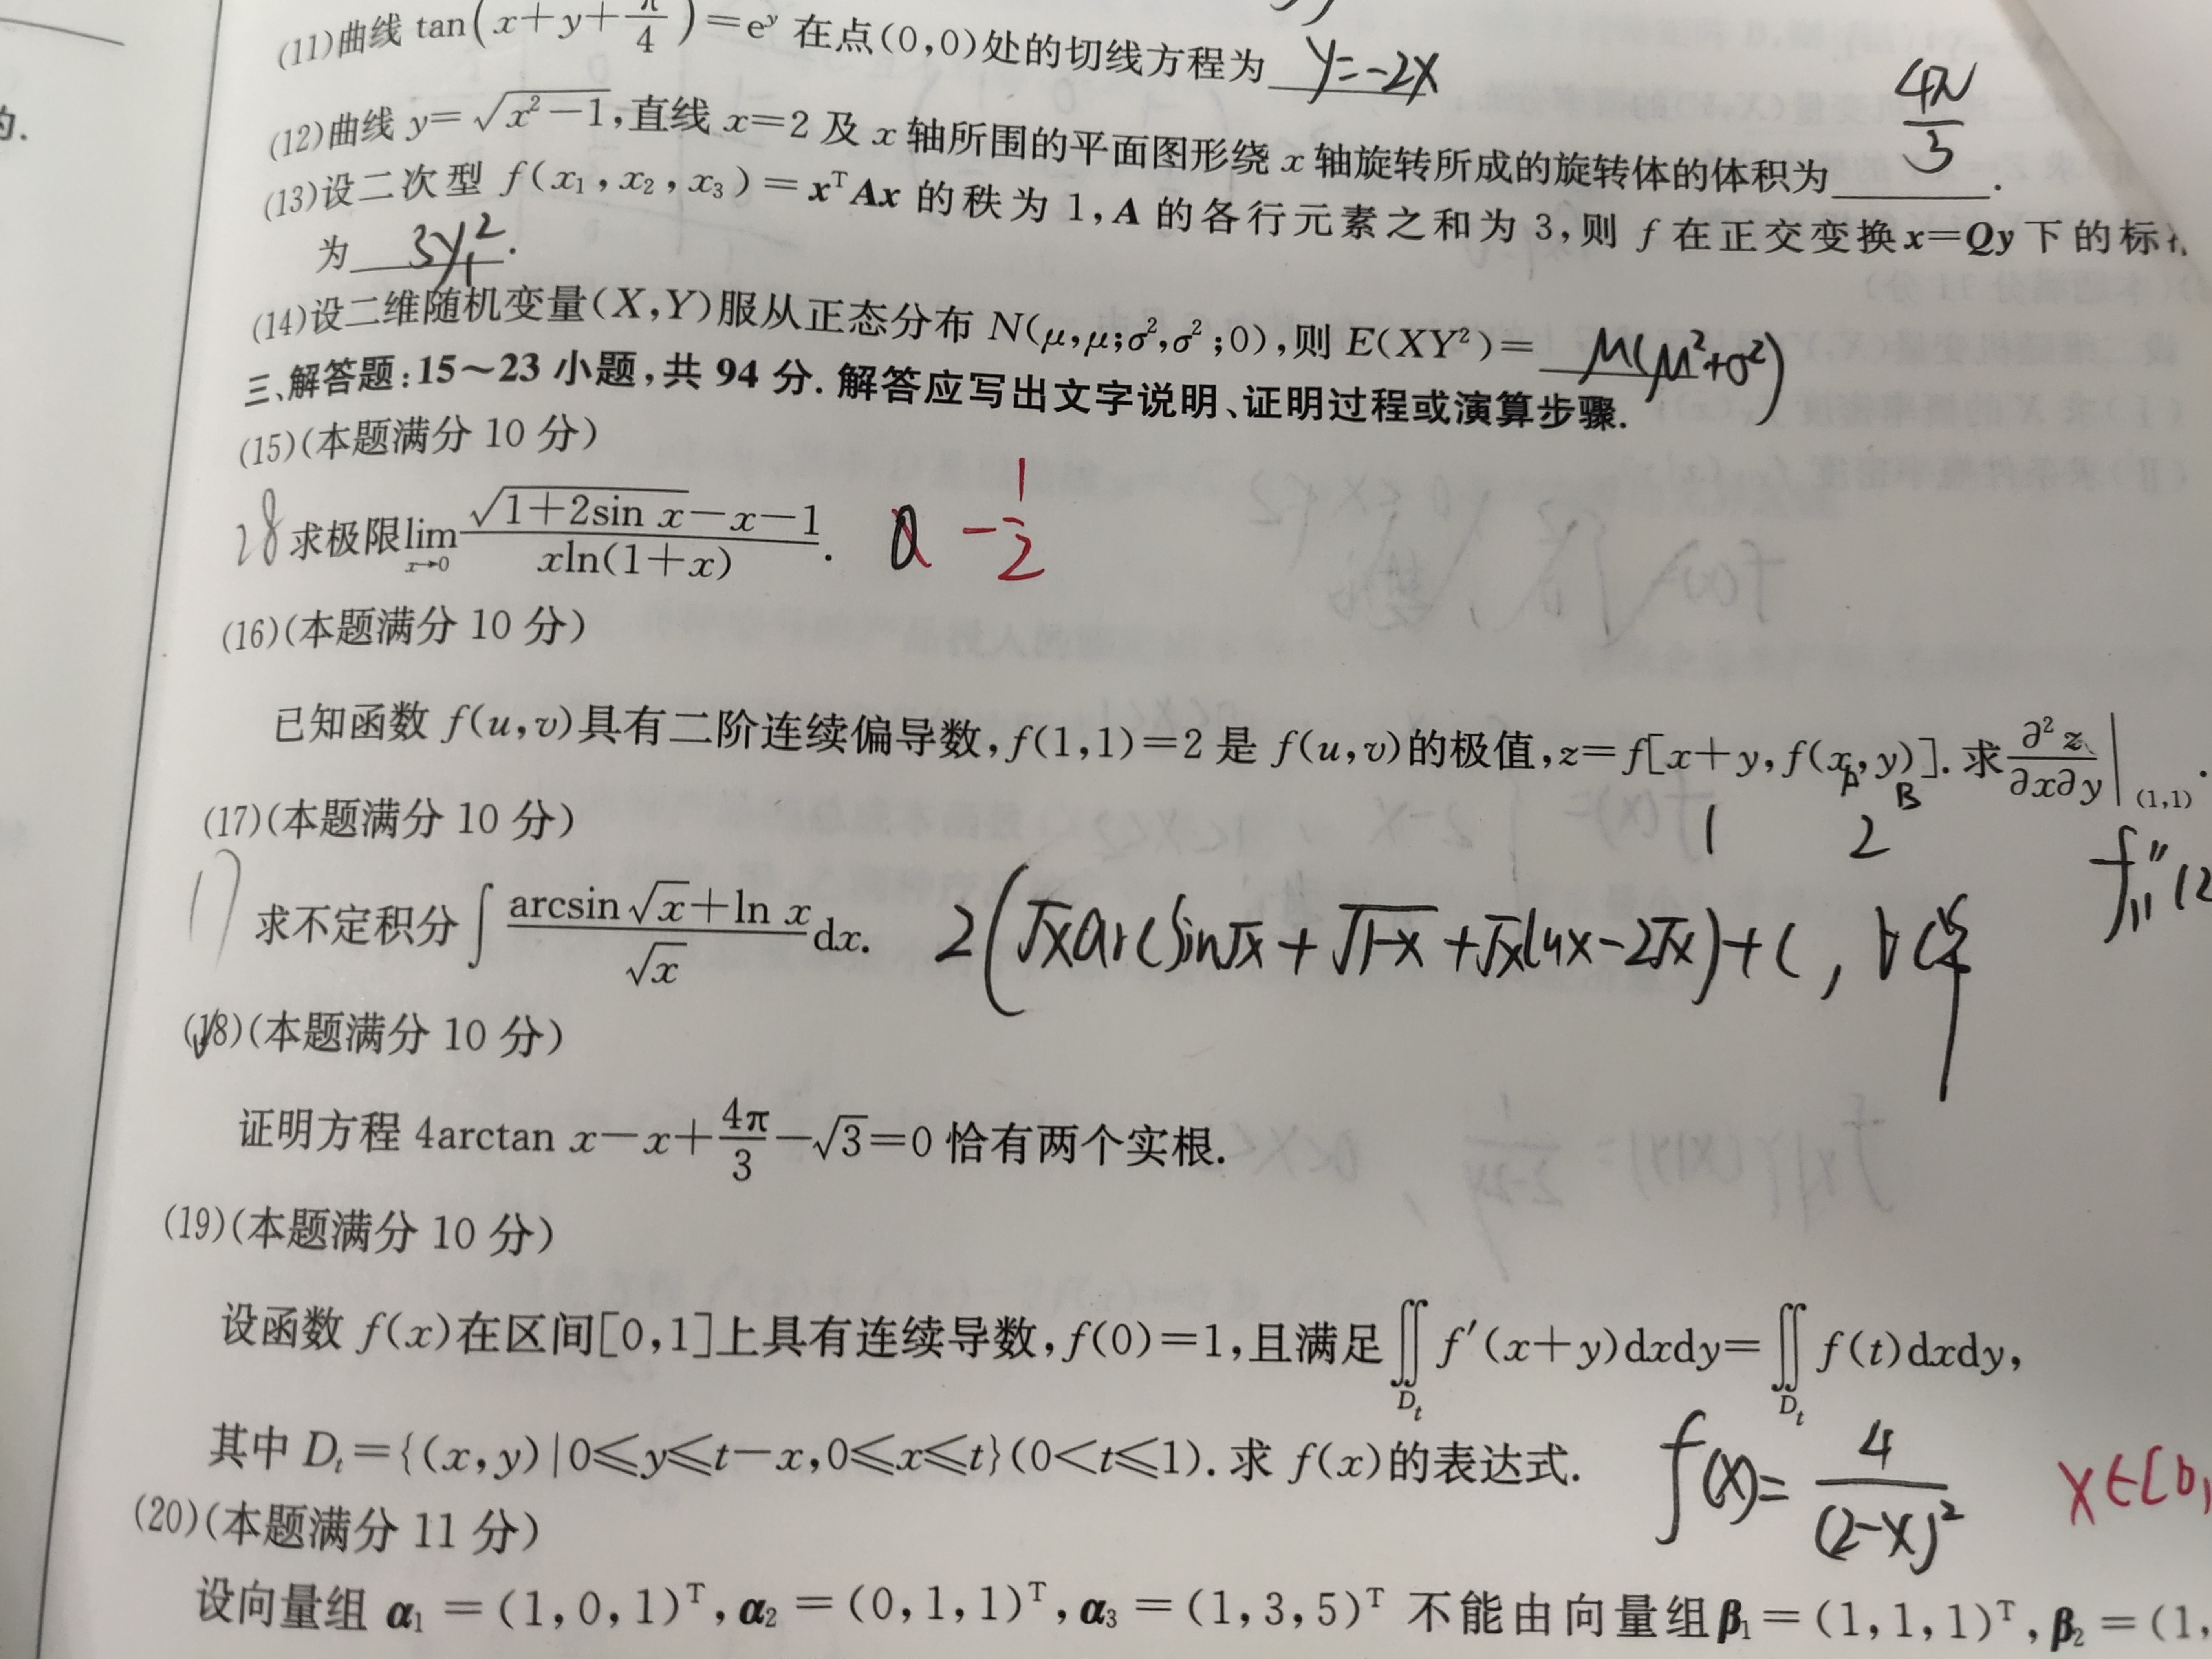 的.
(11)曲线 tan(x+y+π/4)=eʸ 在点(0,0)处的切线方程为 y=-2x
(12)曲线 y=√(x²-1),直线 x=2 及 x 轴所围的平面图形绕 x 轴旋转所成的旋转体的体积为 4π/3 .
(13)设二次型 f(x₁,x₂,x₃)=xᵀAx 的秩为 1,A 的各行元素之和为 3,则 f 在正交变换 x=Qy 下的标
为 3y₁² .
(14)设二维随机变量(X,Y)服从正态分布 N(μ,μ;σ²,σ²;0),则 E(XY²)= μ(μ²+σ²)
三、解答题:15~23 小题,共 94 分. 解答应写出文字说明、证明过程或演算步骤.
(15)(本题满分 10 分)
28 求极限 lim x→0 (√(1+2sin x)-x-1)/(xln(1+x)). 0 -1/2
(16)(本题满分 10 分)
已知函数 f(u,v)具有二阶连续偏导数,f(1,1)=2 是 f(u,v)的极值,z=f[x+y,f(x,y)]. 求 ∂²z/∂x∂y|(1,1).
A B
1 2
f″₁₁(2
(17)(本题满分 10 分)
17 求不定积分 ∫ (arcsin √x+ln x)/√x dx. 2(√x arcsin√x+√(1-x)+√x lnx-2√x)+C,
(18)(本题满分 10 分)
证明方程 4arctan x-x+4π/3-√3=0 恰有两个实根.
(19)(本题满分 10 分)
设函数 f(x)在区间[0,1]上具有连续导数,f(0)=1,且满足∬Dₜ f′(x+y)dxdy=∬Dₜ f(t)dxdy,
其中 Dₜ={(x,y)|0≤y≤t-x,0≤x≤t}(0<t≤1). 求 f(x)的表达式. f(x)=4/(2-x)² x∈[0,
(20)(本题满分 11 分)
设向量组 α₁=(1,0,1)ᵀ,α₂=(0,1,1)ᵀ,α₃=(1,3,5)ᵀ 不能由向量组β₁=(1,1,1)ᵀ,β₂=(1,